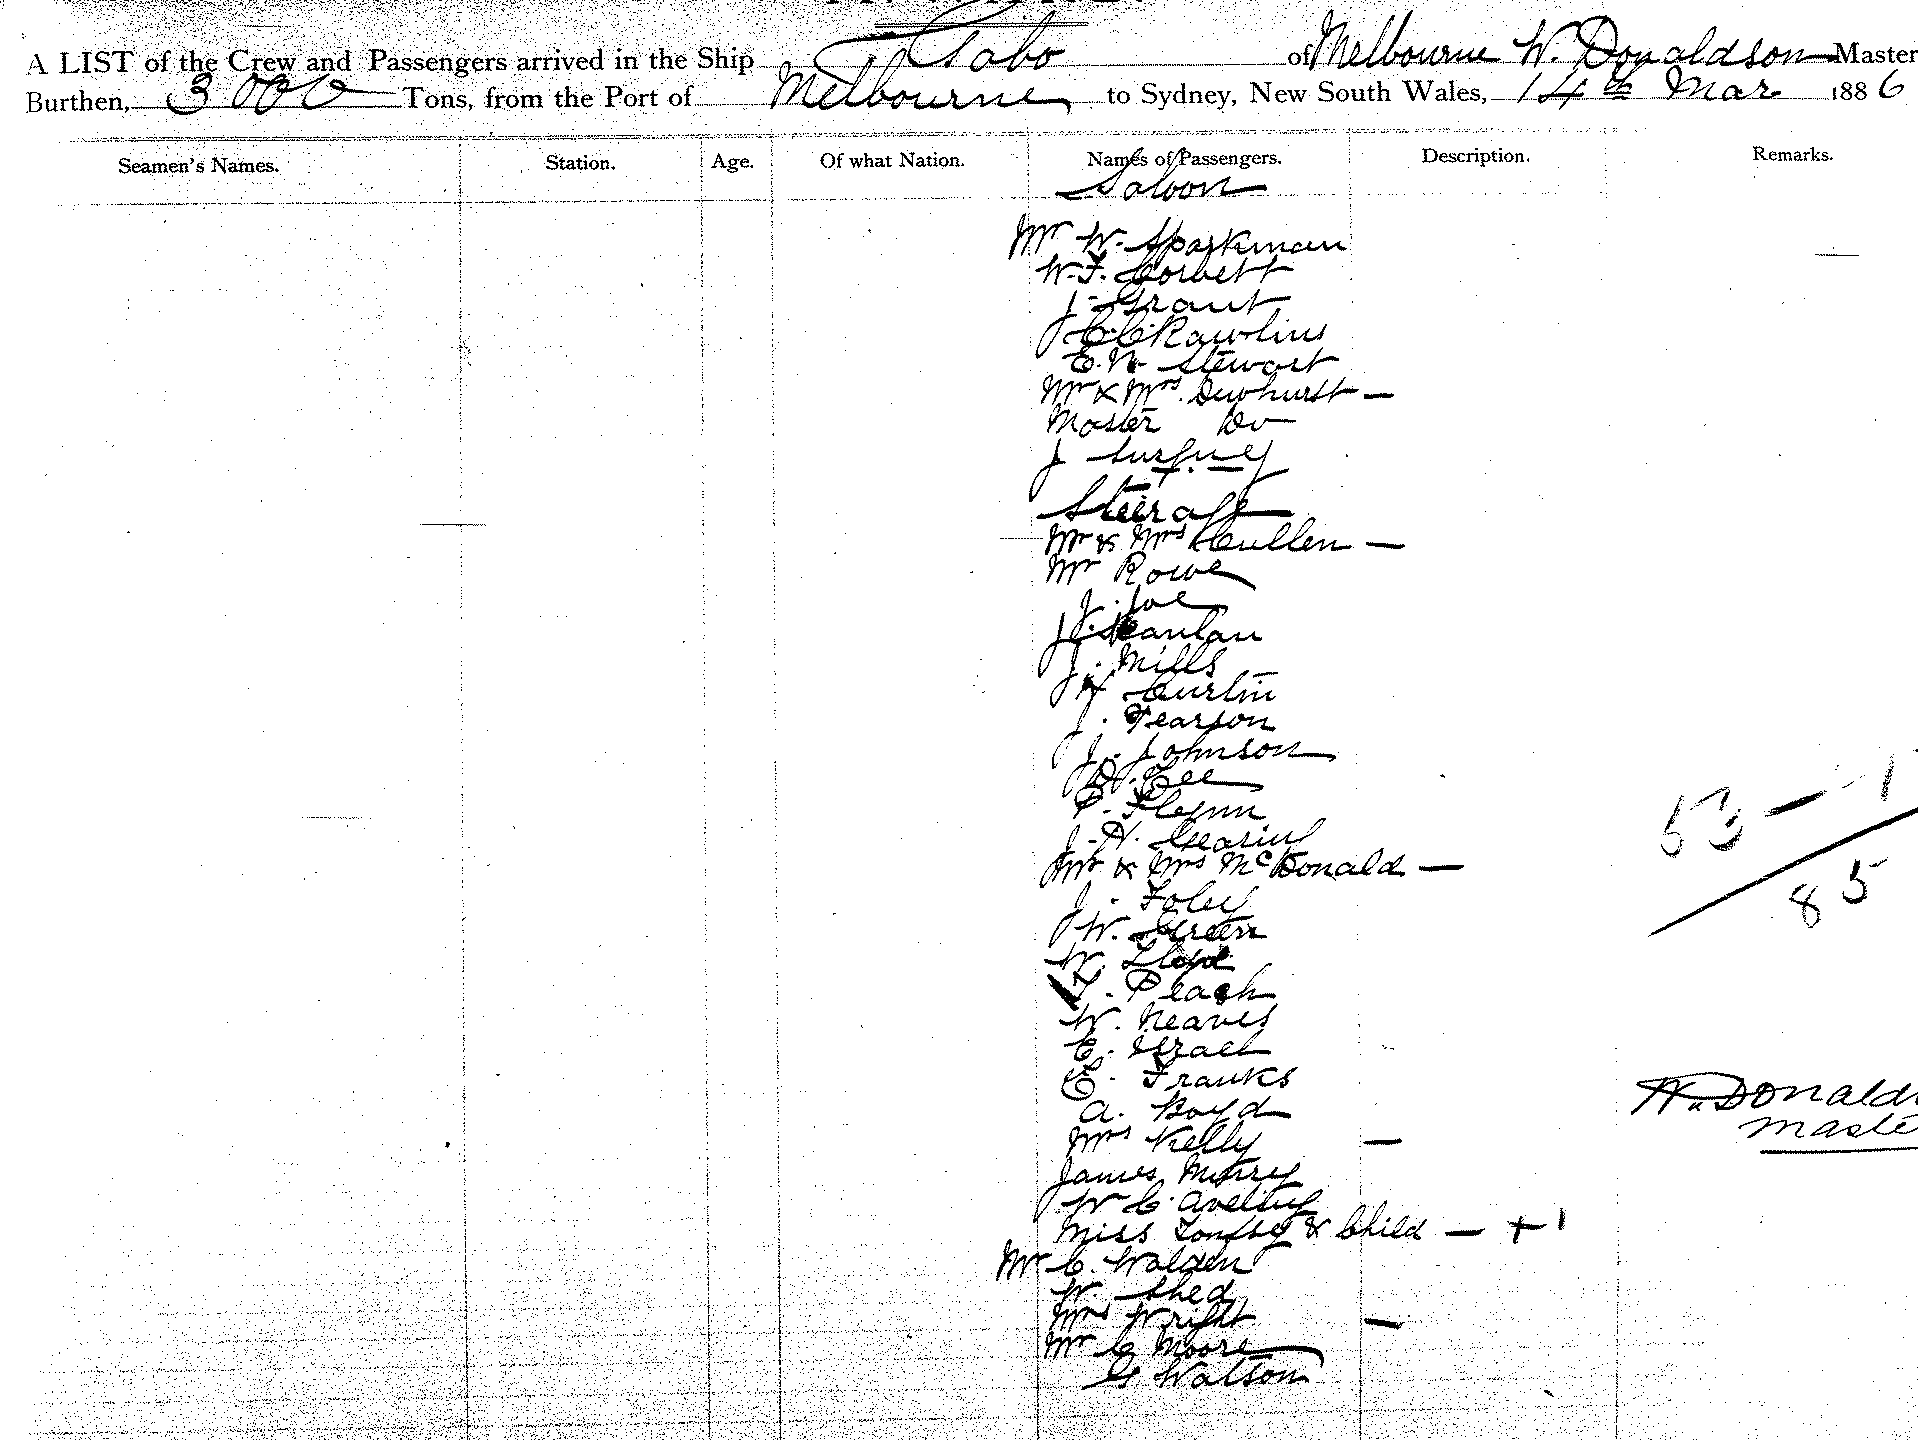 A LIST of the Crew and Passengers arrived in the Ship Gabo of Melbourne W. Donaldson Master
Burthen, 3000 Tons, from the Port of Melbourne to Sydney, New South Wales, 14th Mar 1886
Seamen's Names. Station. Age. Of what Nation. Names of Passengers. Description. Remarks.
Saloon
Mr W. Sparkman
W. F. Corbett
J. Grant
C. C. Rawlins
E. W. Stewart
Mr & Mrs. Dewhurst —
Master Do
J
Steerage
Mr & Mrs Cullen —
Mr Rowe
J. Joe
J. Scanlan
J. Mills
Curtin
J. Pearson
J. Johnson
Lee
P. Flynn
53 — 1
J. H. Gearing
Mr & Mrs McDonald —
85
J. Foley
W. Green
W. Lloyd
T. Peach
W. Neaves
E. Israel
E. Franks
W. Donalds
A. Boyd
Maste
Mrs Kelly —
James Murry
W C
Miss & Child — + 1
Mr C. Walden
W. Shed
Mrs Wright —
Mr C Moore
G Watson